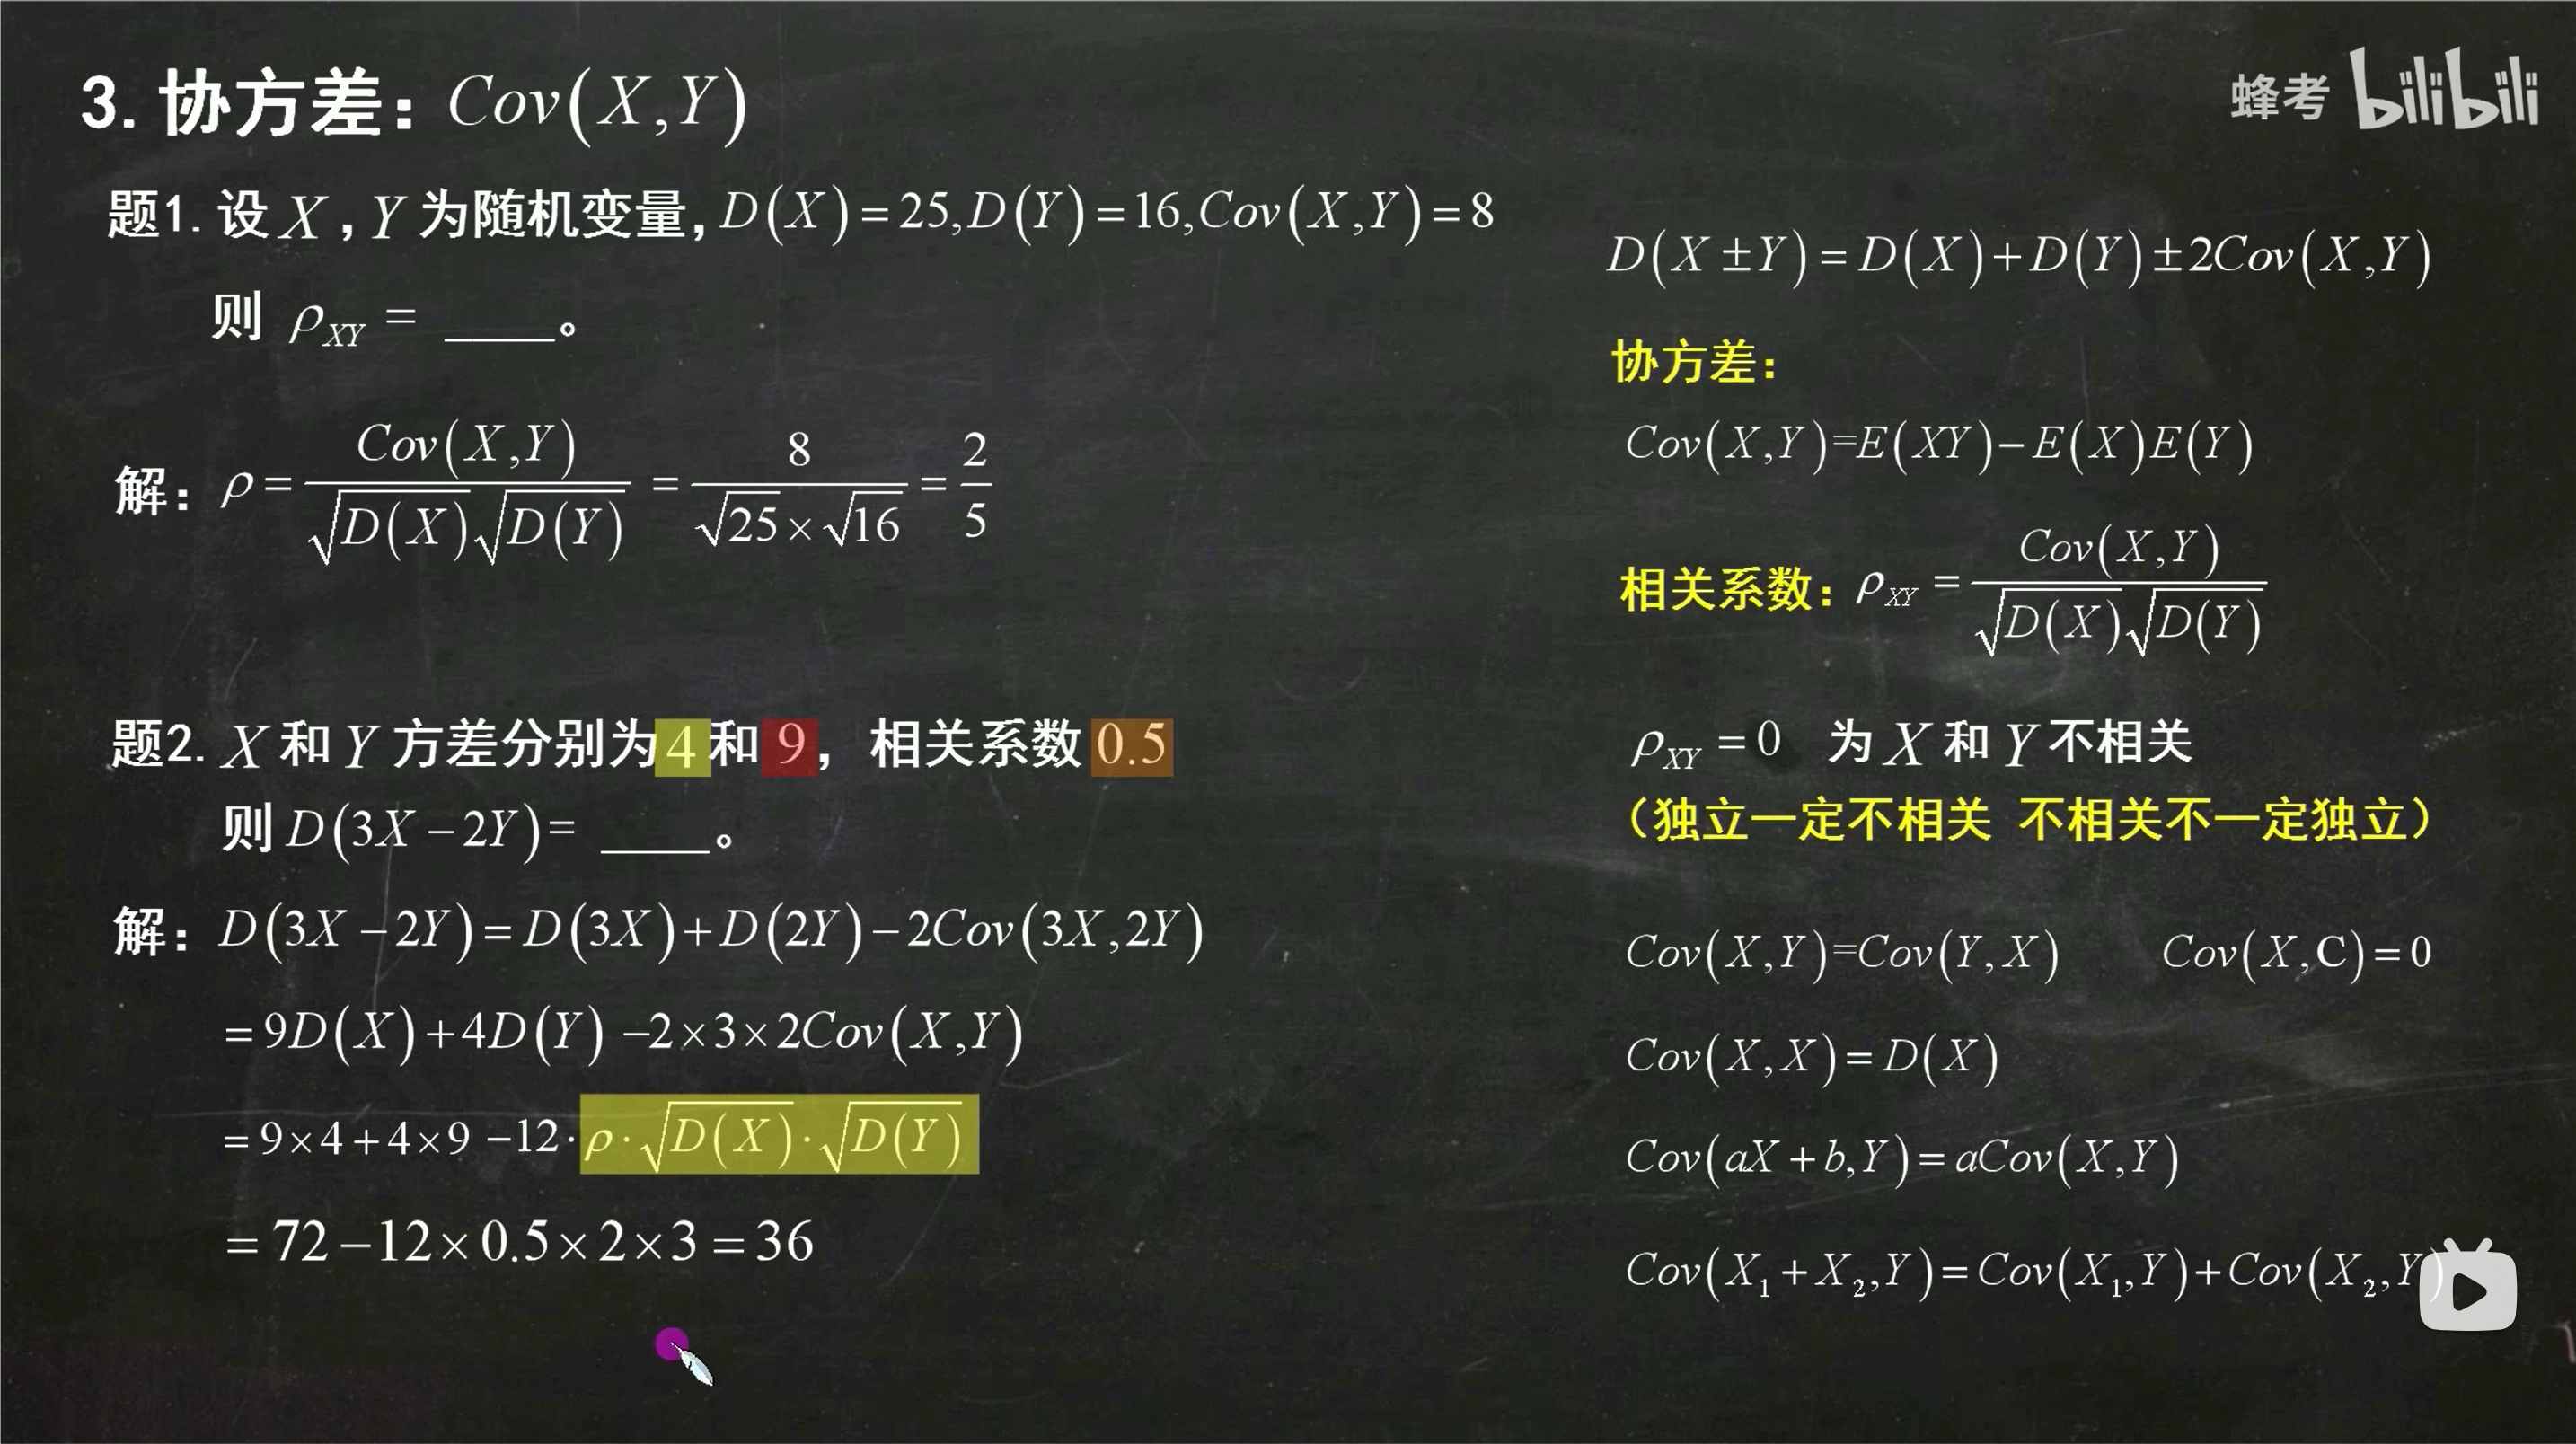 3. 协方差：Cov(X,Y)
蜂考 bilibili
题1. 设 X , Y 为随机变量, D(X)=25, D(Y)=16, Cov(X,Y)=8
则 ρ_XY = ____。
解：ρ = Cov(X,Y) / (√D(X) √D(Y)) = 8 / (√25 × √16) = 2/5
题2. X 和 Y 方差分别为 4 和 9， 相关系数 0.5
则 D(3X−2Y)= ____。
解：D(3X−2Y)=D(3X)+D(2Y)−2Cov(3X,2Y)
=9D(X)+4D(Y)−2×3×2Cov(X,Y)
=9×4+4×9−12·ρ·√D(X)·√D(Y)
=72−12×0.5×2×3=36
D(X±Y)=D(X)+D(Y)±2Cov(X,Y)
协方差：
Cov(X,Y)=E(XY)−E(X)E(Y)
相关系数：ρ_XY = Cov(X,Y) / (√D(X) √D(Y))
ρ_XY =0 为 X 和 Y 不相关
（独立一定不相关 不相关不一定独立）
Cov(X,Y)=Cov(Y,X) Cov(X,C)=0
Cov(X,X)=D(X)
Cov(aX+b,Y)=aCov(X,Y)
Cov(X₁+X₂,Y)=Cov(X₁,Y)+Cov(X₂,Y)